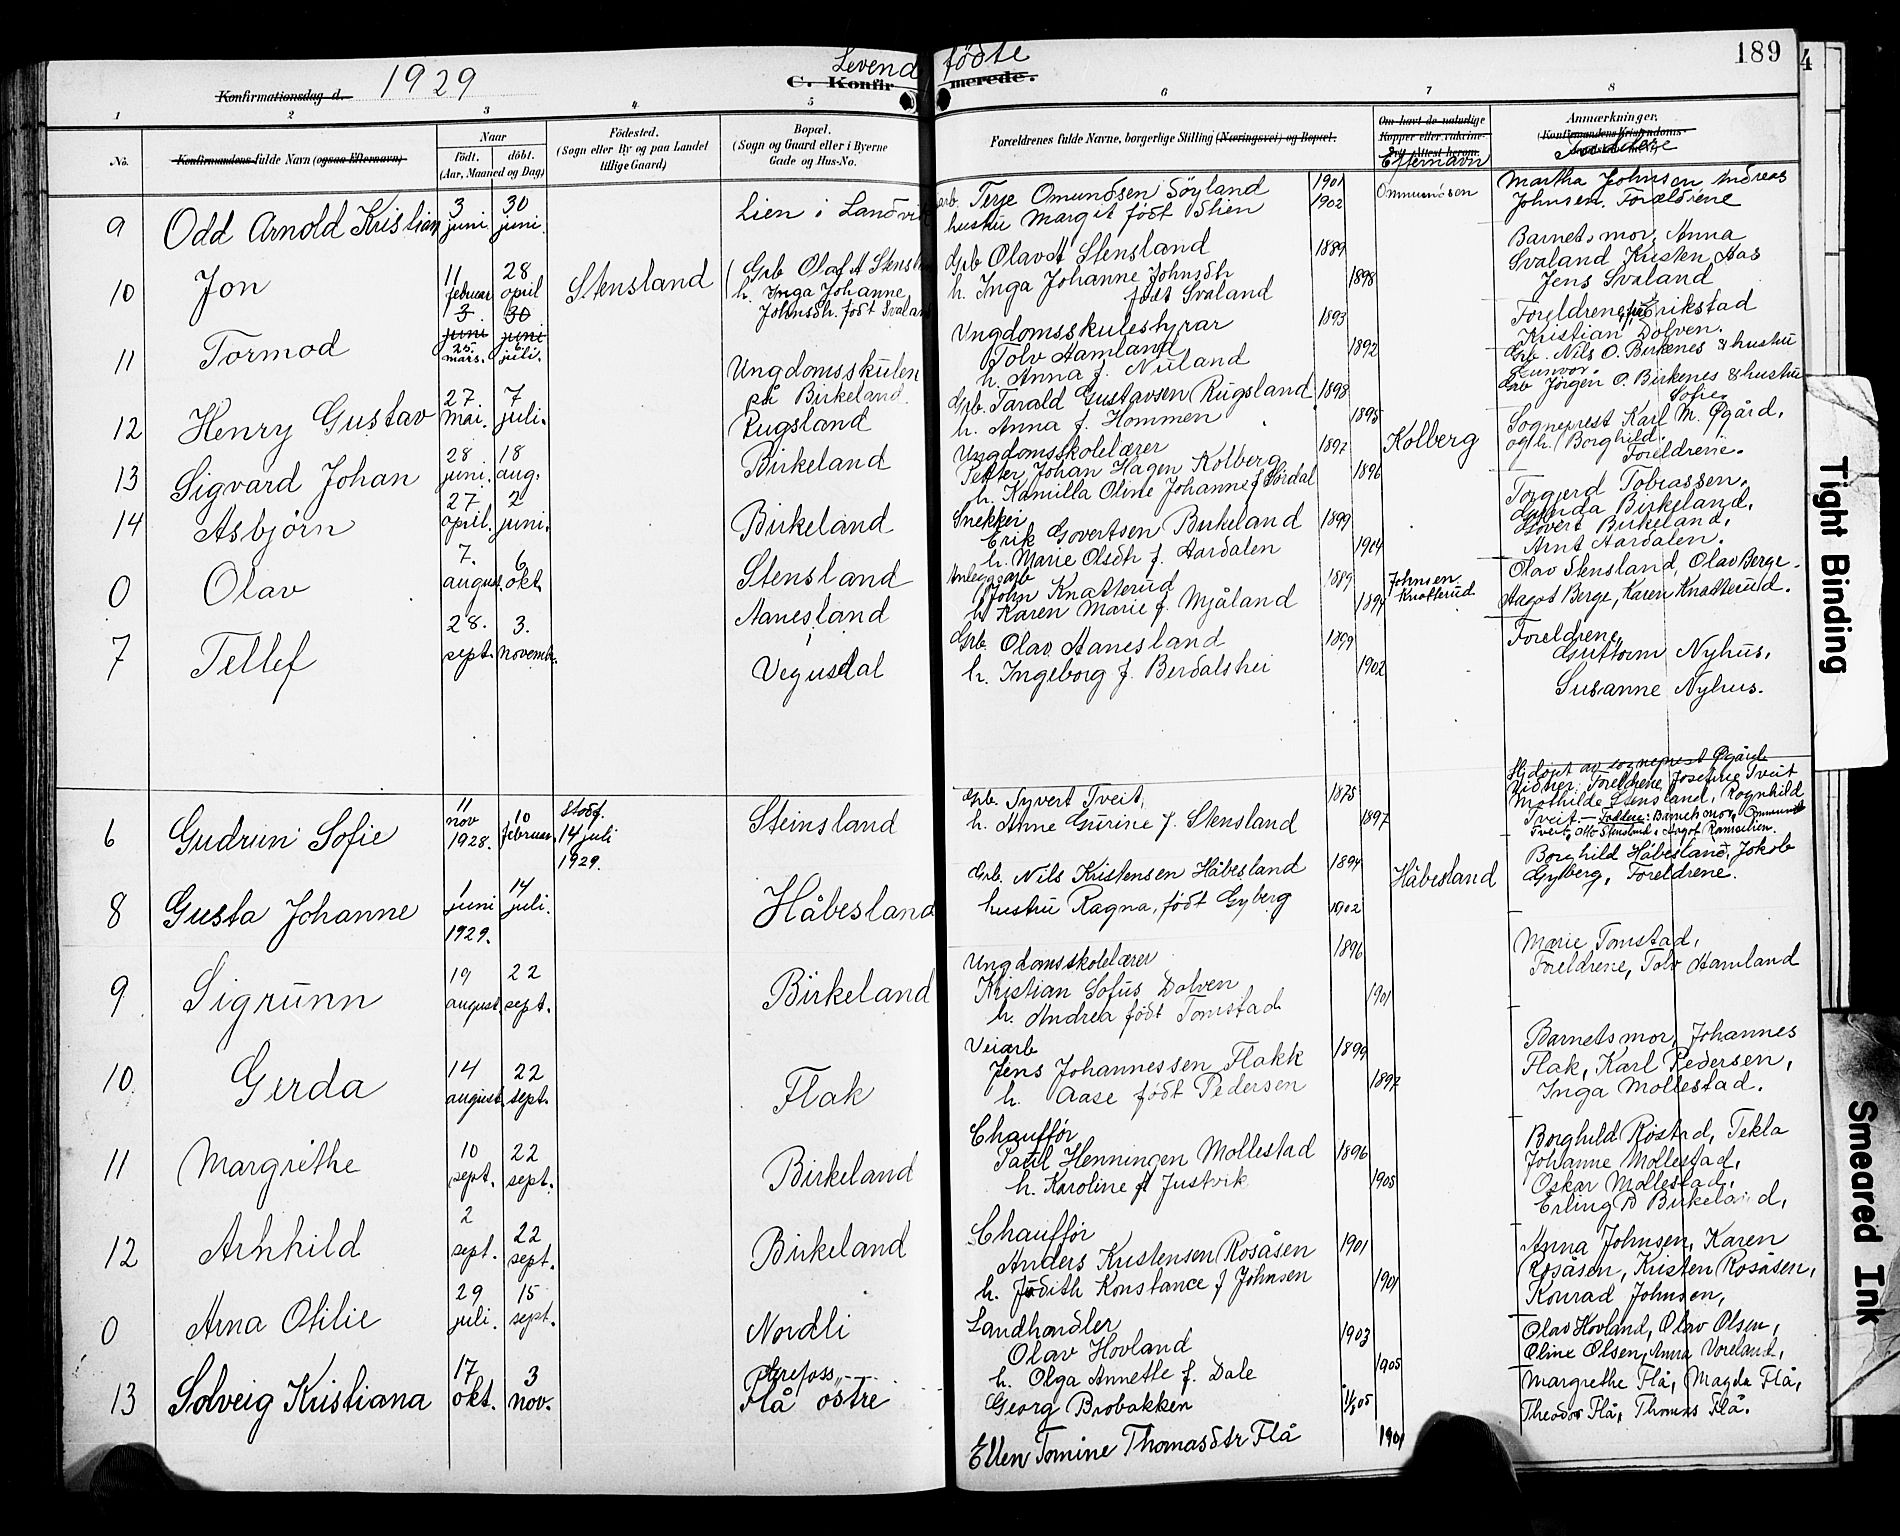 1929
Levend fødte
189
4
Konfirmationsdag d.
C. Konfirmerede.
1 2 3 4 5 6 7 8
No.
Konfirmandens fulde Navn (ogsaa Efternavn)
Naar
født. døbt.
(Aar, Maaned og Dag)
Fødested.
(Sogn eller By og paa Landet
tillige Gaard)
Bopæl.
(Sogn og Gaard eller i Byerne
Gade og Hus-No.
Forældrenes fulde Navne, borgerlige Stilling (Næringsvei) og Bopæl.
Om havt de naturlige
Kopper eller vaccine-
Efternavn
Anmærkninger,
(Konfirmandens Kristendoms-
Faddere
9 Odd Arnold Kristian 3 juni 30 juni.
Lien i Landvik
arb. Terje Omundsen Søyland 1901
hustru Margit født Stien 1902
Ommundsen
Martha Johnsen Andreas
Johnsen, Forældrene
10 Jon 11 februar 28 april Stensland
Grb Olaf A Stensl
h. Inga Johanne
Johnsdh. født Svaland
Grb Olav A Stensland 1889
h. Inga Johanne Johnsdh 1898
født Svaland
Barnets mor, Anna
Svaland Kristen Aas
Jens Svaland
11 Tormod 3. juni 30 juni
25. mars. 6. juli.
Ungdomsskulen
på Birkeland.
Ungdomsskulestyrar 1893
Tolv Aamland
h. Anna f. Nuland 1892
Foreldrene, Erikstad
Kristian Dolven.
Grb. Nils O. Birkenes & hustru
Gunvor.
12 Henry Gustav 27. mai. 7 juli.
Rugsland
Grb. Tarald Gustavsen Rugsland 1898
h. Anna f. Hommen 1895
Grb Jørgen O. Birkenes & hustru
Sofie.
13 Sigvard Johan 28 juni. 18 aug.
Birkeland
Ungdomsskolelærer 1897
Petter Johan Hagen Kolberg
h. Kamilla Oline Johanne f Sørdal 1896
Kolberg
Sogneprest Karl M. Øgård,
og h. Borghild.
Foreldrene.
14 Asbjørn 27 april. 2 juni.
Birkeland
Snekker 1899
Erik Govertsen Birkeland
h. Marie Olsdh f. Aardalen 1904
Torgjerd Tobiassen,
Gunda Birkeland,
Govert Birkeland,
Arnt Aardalen.
0 Olav 7. august. 6 okt.
Stensland
Anleggsarb 1889
John Knatterud
h. Karen Marie f. Mjåland 1894
Johnsen
Knatterud
Olav Stensland, Olav Berge
Aagot Berge, Karen Knatterud.
7 Tellef 28. sept. 3. novembr.
Aanesland
i
Vegusdal
Grb. Olav Aanesland 1899
h. Ingeborg f. Berdalshei 1902
Foreldrene,
Guttorm Nyhus,
Susanne Nyhus.
6 Gudrun Sofie 11 nov 1928. 10 februar
stadf. 14 juli 1929.
Steinsland
Grb. Syvert Tveit, 1875
h. Anne Gurine f. Stensland 1897
Hjdøpt av sogneprest Øgård
Vidner: Foreldrene, Josefine Tveit
Mathilde Stensland, Ragnhild
Tveit – Faddere: Barnets mor, Ommund
Tveit, Olav Stensland, Aagot Ramselien.
8 Gusta Johanne 1 juni 1929. 14 juli.
Håbesland
Grb. Nils Kristensen Håbesland 1894
hustru Ragna, født Gyberg 1902
Håbesland
Borghild Håbesland, Jakob
Gyberg, Foreldrene.
9 Sigrunn 19 august. 22 sept.
Birkeland
Ungdomsskolelærer 1896
Kristian Sofus Dolven
h. Andrea født Tomstad 1901
Marie Tomstad,
Foreldrene, Tolv Aamland
10 Gerda 14 august. 22 sept.
Flak
Veiarb 1899
Jens Johannessen Flakk
h. Aase født Pedersen 1897
Barnets mor, Johannes
Flak, Karl Pedersen,
Inga Mollestad.
11 Margrethe 10 sept. 22 sept.
Birkeland
Chauffør
Paul Henningen Mollestad 1896
h. Karoline f Justvik 1905
Borghild Røstad, Tekla
Johanne Mollestad,
Oskar Mollestad,
Erling B Birkeland,
12 Arnhild 2 sept. 22 sept.
Birkeland
Chauffør
Anders Kristensen Rosåsen 1901
h. Judith Konstance f Johnsen 1901
Anna Johnsen, Karen
Rosåsen, Kristen Rosåsen,
Konrad Johnsen,
0 Arna Otilie 29 juli. 15 sept.
Nordli
Landhandler 1903
Olav Hovland
h. Olga Annette f. Dale 1905
Olav Hovland, Olav Olsen,
Oline Olsen, Anna Voreland,
13 Solveig Kristiana 17 okt. 3 nov.
Herefoss
Flå østre
Georg Brobakken 1/ 05
Ellen Tomine Thomasdtr Flå 1901
Margrethe Flå, Magda Flå,
Theodor Flå, Thomas Flå.
Tight Binding
Smeared Ink